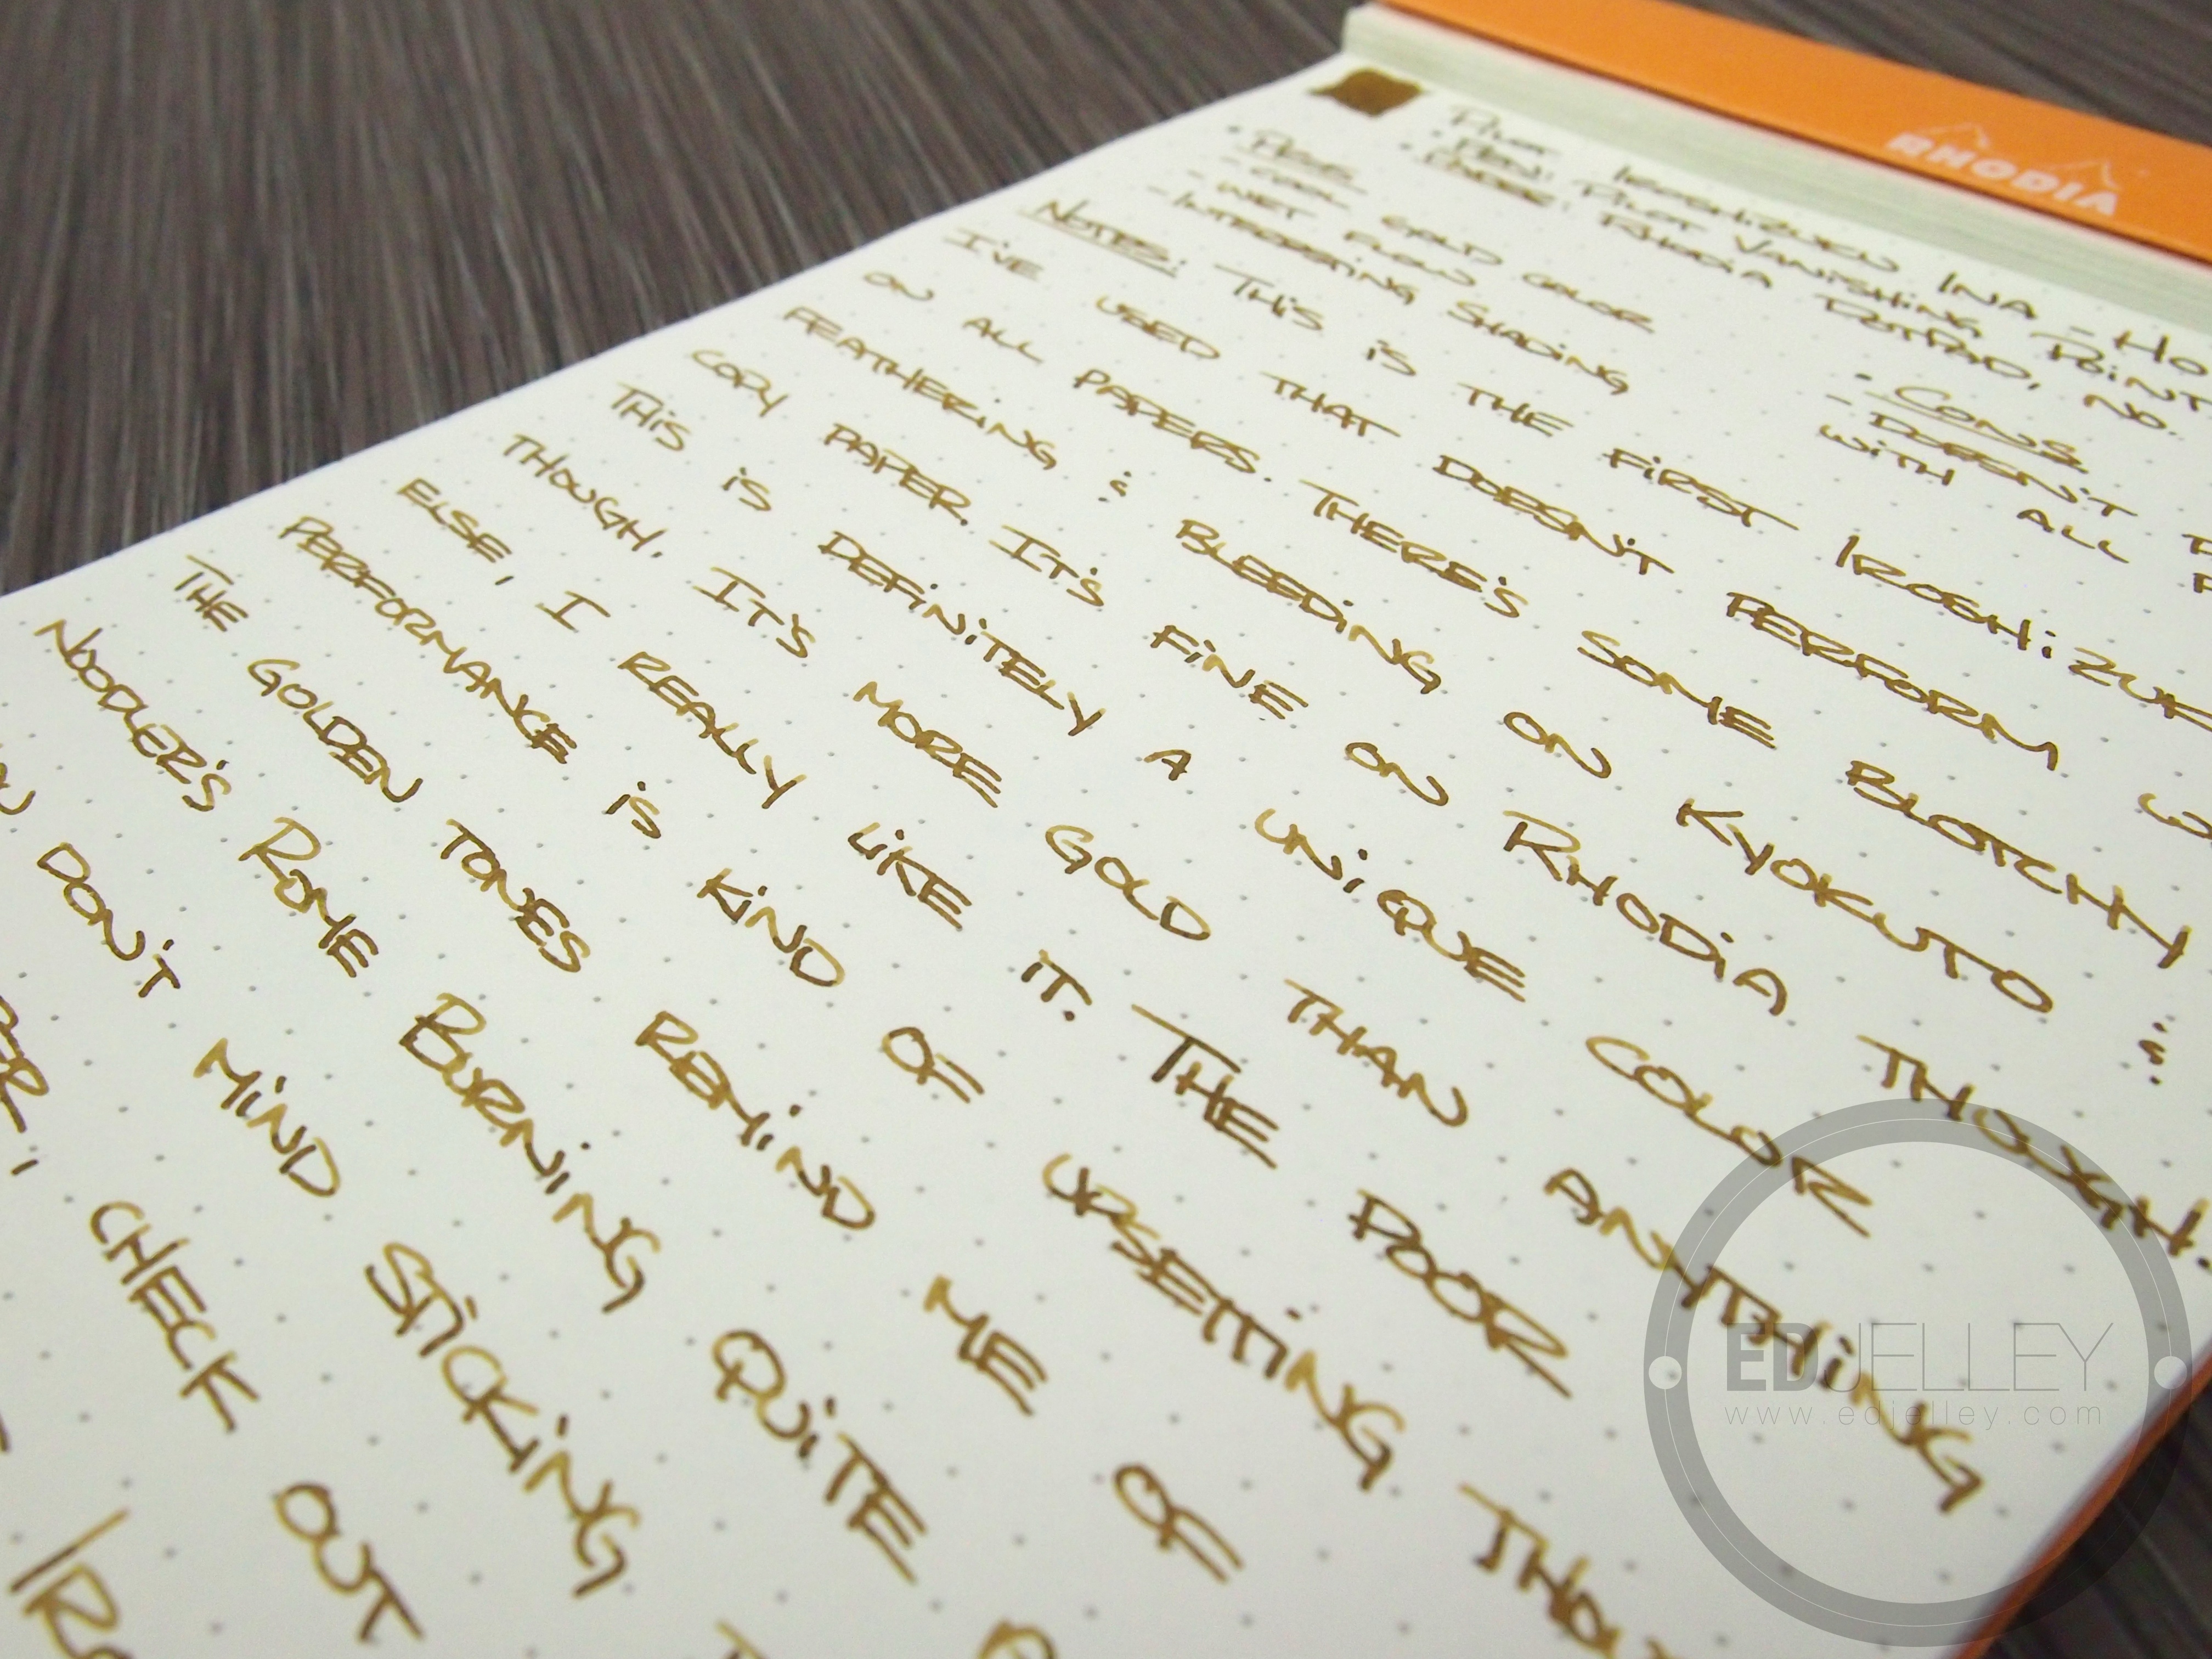 RHODIA
PILOT IROSHIZUKU INA - HO
• PEN: PILOT VANISHING POINT
• PAPER: RHODIA DOTPAD, NO.
• PROS
- COOL GOLD COLOR
- WET FLOW
- INTERESTING SHADING
• CONS
- DOESN'T
WITH ALL
NOTES: THIS IS THE FIRST IROSHIZUK
I'VE USED THAT DOESN'T PERFORM
ON ALL PAPERS. THERE'S SOME BLOTCHY
FEATHERING & BLEEDING ON KYOKUTO &
COPY PAPER. IT'S FINE ON RHODIA THOUGH.
THIS IS DEFINITELY A UNIQUE COLOR
THOUGH. IT'S MORE GOLD THAN ANYTHING
ELSE, I REALLY LIKE IT. THE POOR
PERFORMANCE IS KIND OF UPSETTING THOU
THE GOLDEN TONES REMIND ME OF
NOODLER'S ROME BURNING QUITE
DON'T MIND STICKING
CHECK OUT
IRO
EDJELLEY
www.edjelley.com